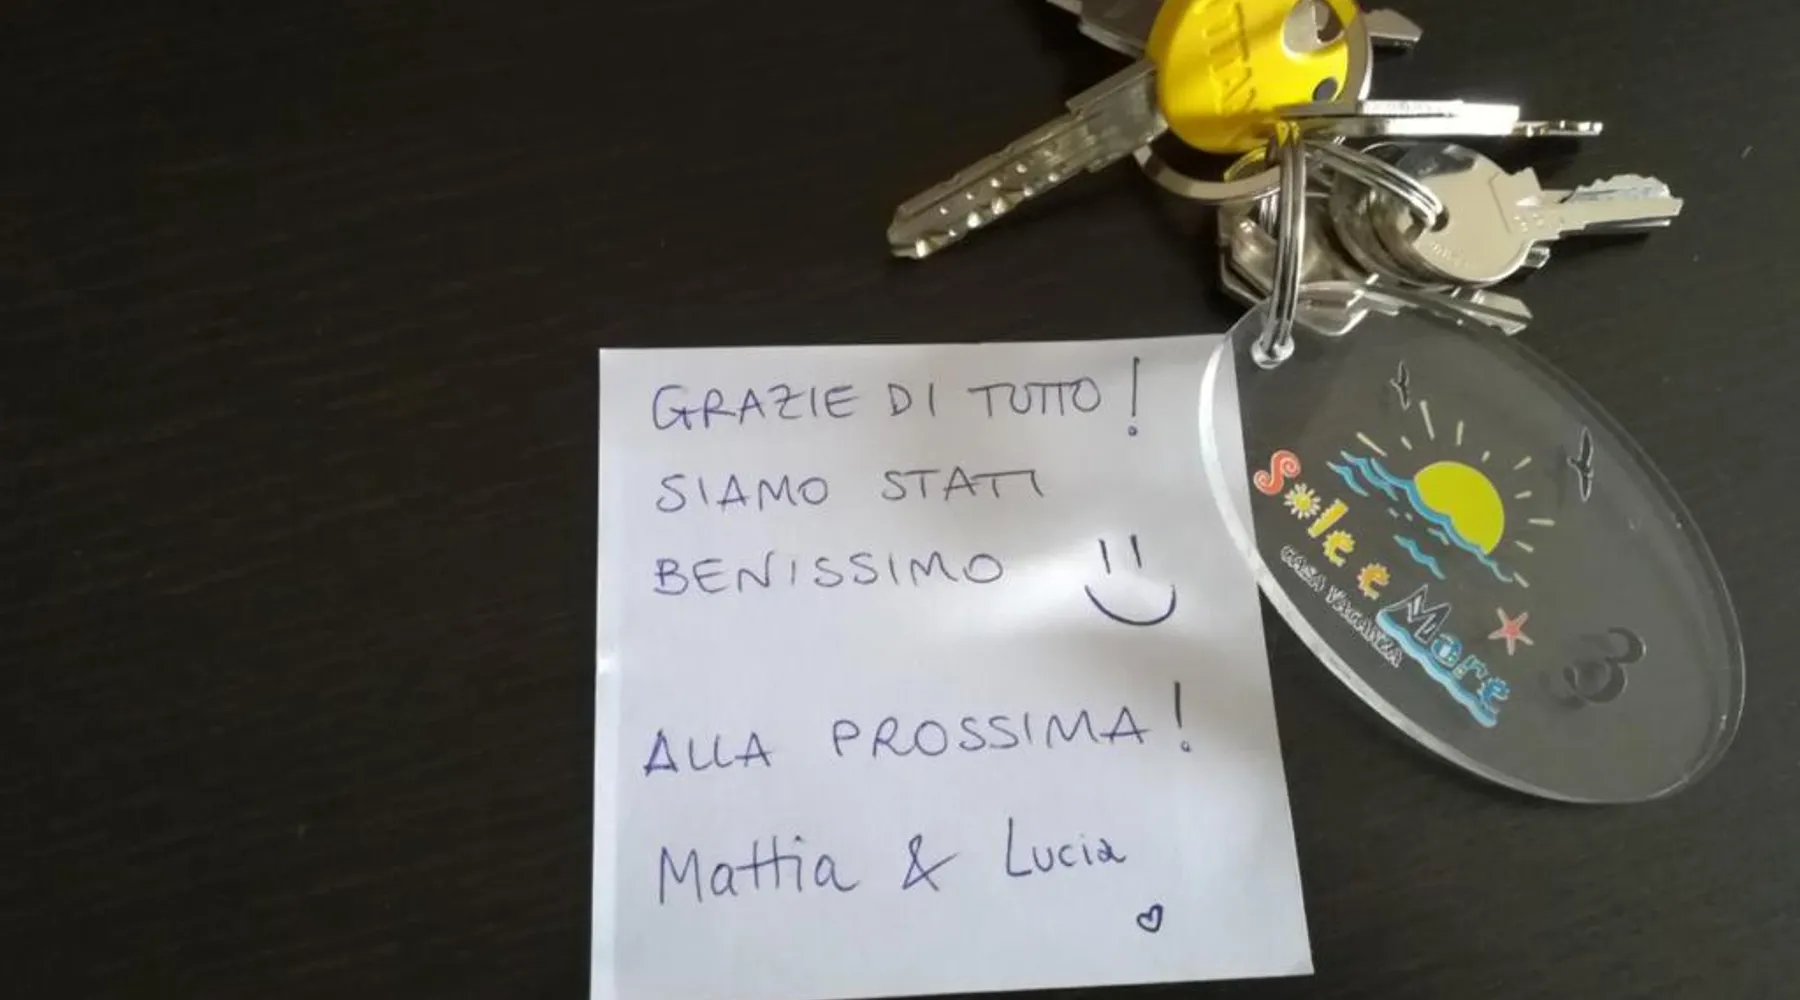 GRAZIE DI TUTTO!
SIAMO STATI
BENISSIMO
ALLA PROSSIMA!
Mattia & Lucia
Sole e Mare
CASA VACANZA